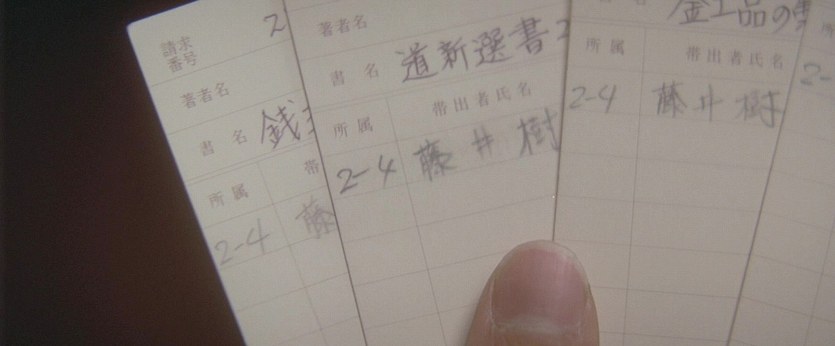 2
請求
番号
著者名
書名 銭
所属 帯
2-4 藤
著者名
書名 道新選書
所属 帯出者氏名
2-4 藤井樹
金工品の
所属 帯出者氏名
2-4 藤井樹
2-